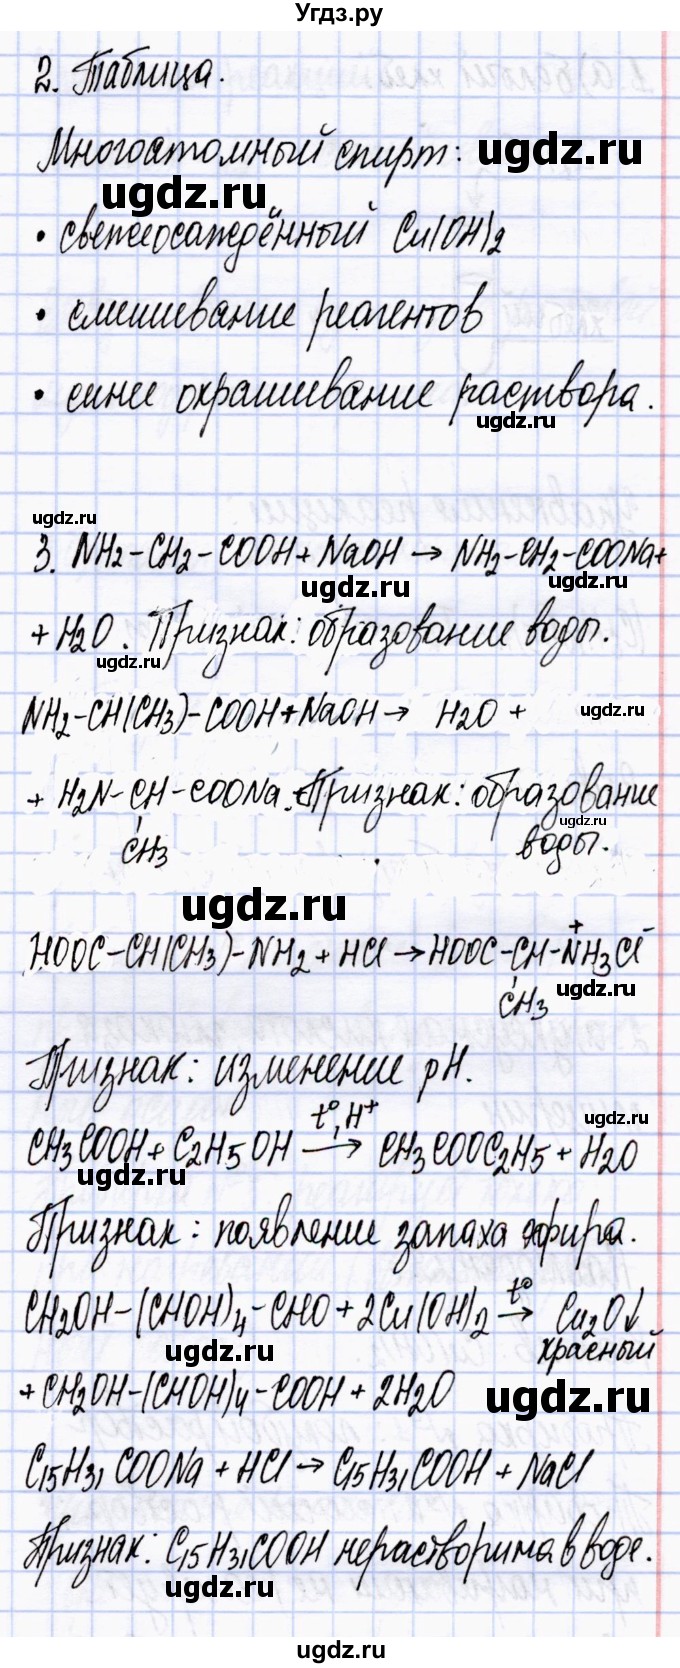 Угдз.ру
2. Таблица.
Многоатомный спирт: ugdz.ru
ugdz.ru
• свежеосаждённый Cu(OH)2
• смешивание реагентов
• синее окрашивание раствора.
ugdz.ru
ugdz.ru
3. NH2-CH2-COOH+NaOH → NH2-CH2-COONa+
ugdz.ru ugdz.ru
+ H2O. Признак: образование воды.
ugdz.ru
NH2-CH(CH3)-COOH+NaOH → H2O + ugdz.ru
+ H2N-CH-COONa. Признак: образование
ugdz.ru
CH3 воды.
ugdz.ru
HOOC-CH(CH3)-NH2+HCl → HOOC-CH-N⁺H3Cl⁻
ugdz.ru
CH3
Признак: изменение pH.
t°, H⁺ ugdz.ru
CH3COOH+C2H5OH → CH3COOC2H5+H2O
ugdz.ru
Признак: появление запаха эфира.
t°
CH2OH-(CHOH)4-CHO+2Cu(OH)2 → Cu2O↓
ugdz.ru красный
+CH2OH-(CHOH)4-COOH+2H2O ugdz.ru
C15H31COONa+HCl → C15H31COOH+NaCl
Признак: C15H31COOH нерастворима в воде.
ugdz.ru
ugdz.ru